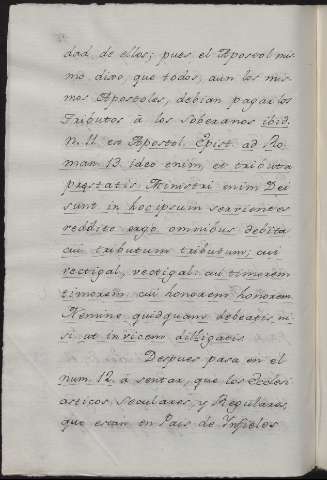 dad de ellos; pues el Apostol mis
mo dixo, que todos, aun los mis
mos Apostoles, debian pagar los
Tributos à los Soberanos ibid.
n. 11. ex Apostol. Epist. ad Ro
man 13. ideo enim, et tributa
præstatis Ministri enim Dei
sunt in hoc ipsum servientes
reddite ergo omnibus debita
cui tributum tributum; cui
vectigal, vectigal: cui timorem
timorem cui honorem honorem
Nemini quidquam debeatis ni-
si ut invicem diligatis
Despues pasa en el
num. 12. à sentar, que los Ecclesi
asticos seculares, y Regulares,
que estan en Pais de Infieles